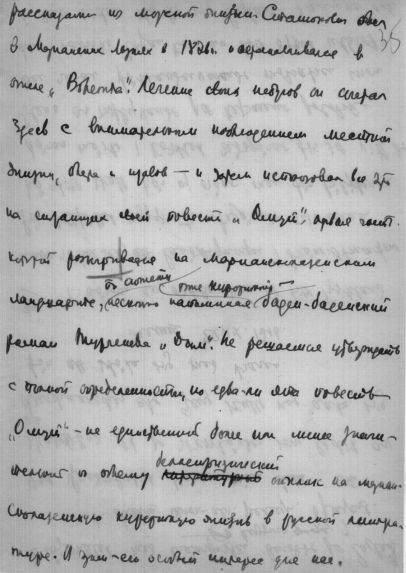 рассказами из морской жизни. Станюкович был
35
в Мариенских Лазнях в 18 г. и останавливался в
отеле „ ". Лечение своих недугов он сочетал
здесь с внимательным наблюдением местной
жизни, быта и нравов — и затем использовал все это
на страницах своей повести „ ", первая часть
которой развертывается на мариенсколазенском
по сюжету тоже курортный
ландшафте, несколько напоминая баден-баденский
роман Тургенева „Дым". Не решаемся утверждать
с полной определенностью, но едва-ли эта повесть
„ " – не единственный более или менее значи-
тельный по объему беллетристический отклик на мариен-
сколазенскую курортную жизнь в русской литера-
туре. И этим – его особый интерес для нас.